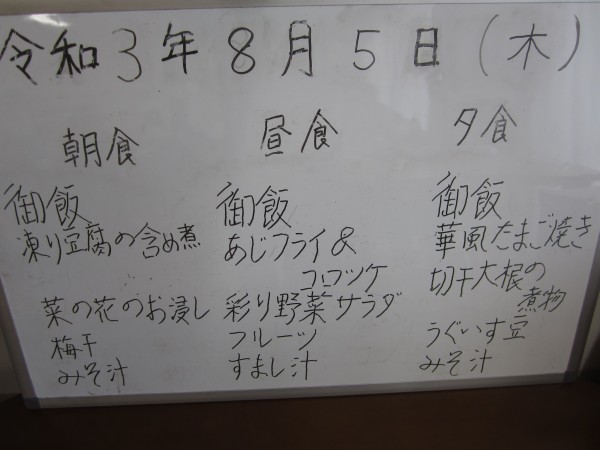 令和3年8月5日(木)
朝食
御飯
凍り豆腐の含め煮
菜の花のお浸し
梅干
みそ汁
昼食
御飯
あじフライ&
コロッケ
彩り野菜サラダ
フルーツ
すまし汁
夕食
御飯
華風たまご焼き
切干大根の
煮物
うぐいす豆
みそ汁